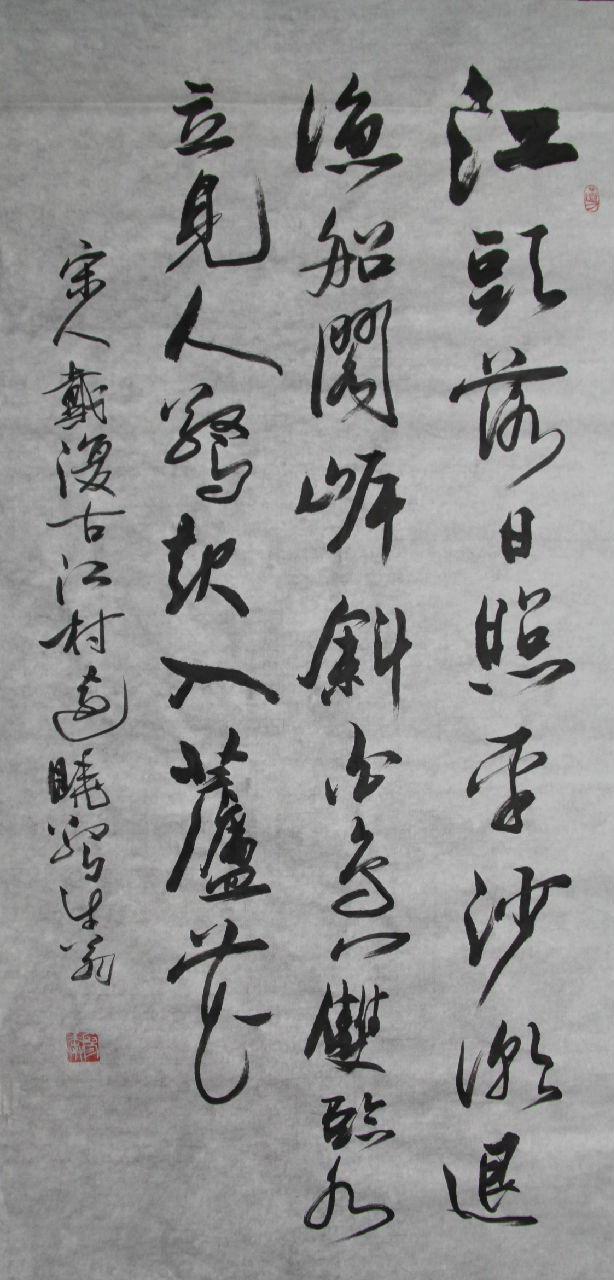 江頭落日照平沙潮退
漁船閣岸斜白鳥一雙臨水
立見人驚起入蘆花
宋人戴復古江村遠眺生翁